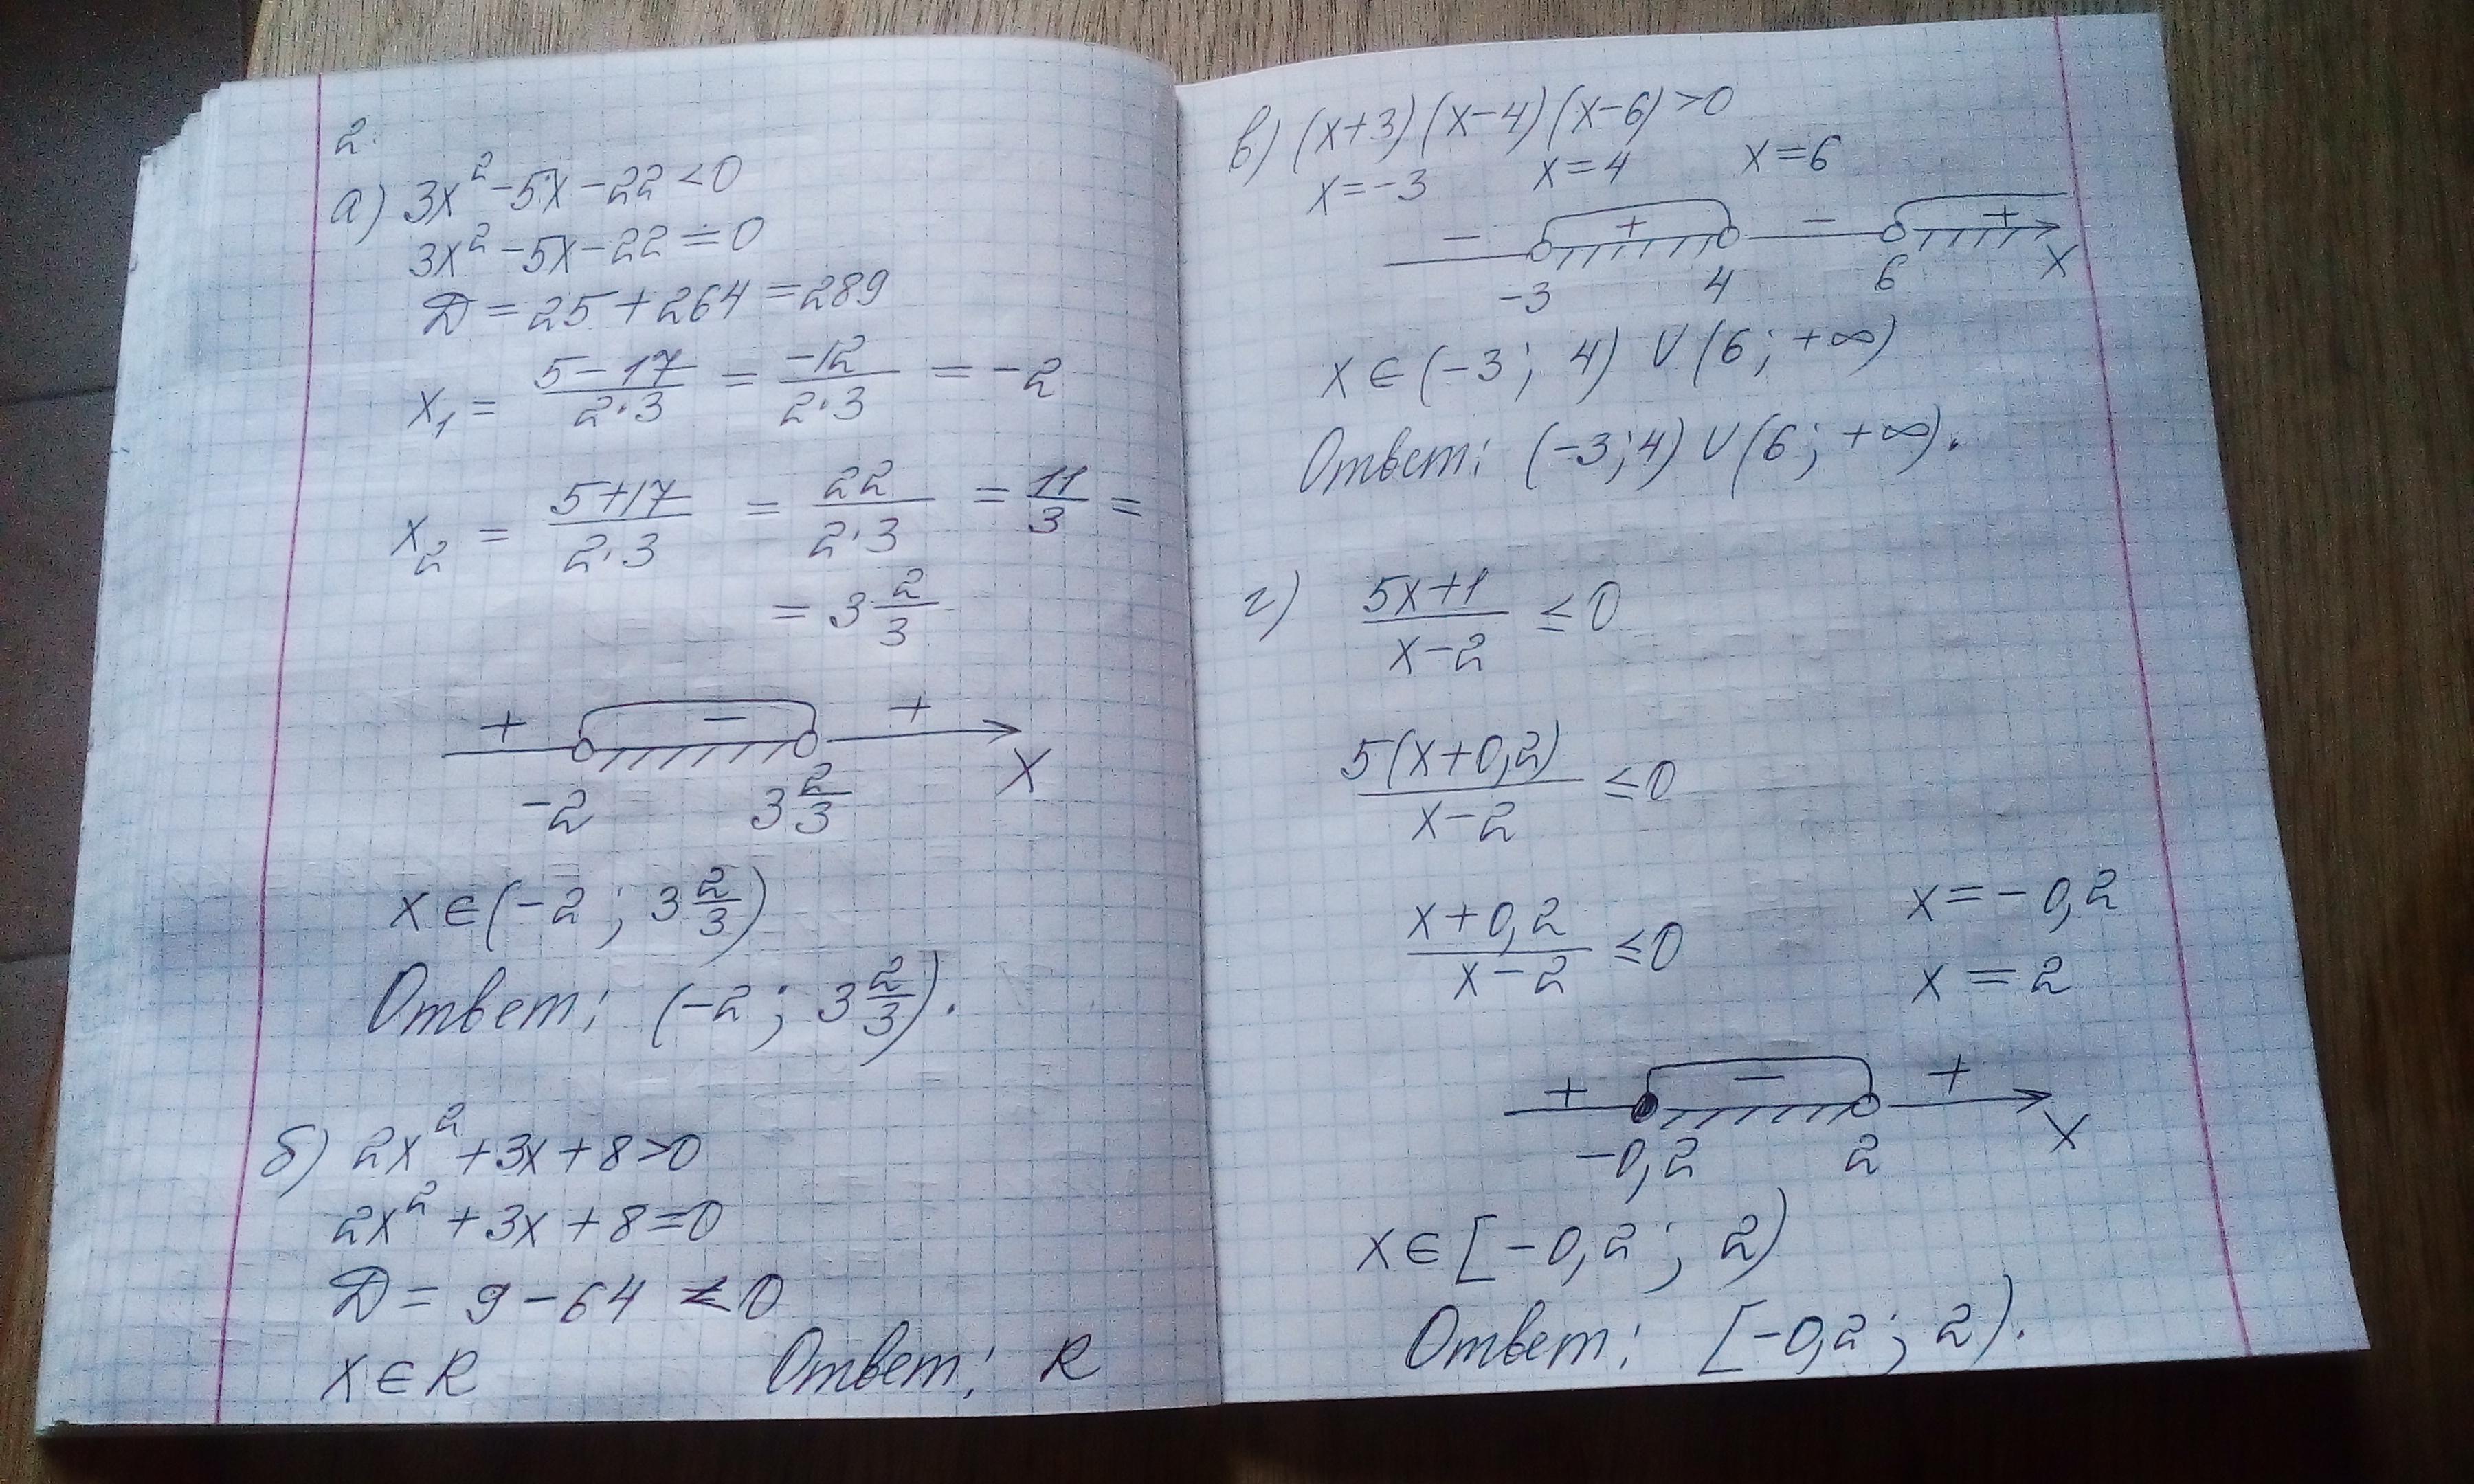 2.
а) 3x² - 5x - 22 < 0
3x² - 5x - 22 = 0
D = 25 + 264 = 289
x₁ = (5 - 17)/(2·3) = -12/(2·3) = -2
x₂ = (5 + 17)/(2·3) = 22/(2·3) = 11/3 =
= 3 2/3
+ - +
-2 3 2/3 x
x ∈ (-2; 3 2/3)
Ответ: (-2; 3 2/3).
б) 2x² + 3x + 8 > 0
2x² + 3x + 8 = 0
D = 9 - 64 < 0
x ∈ R Ответ: R
в) (x+3)(x-4)(x-6) > 0
x = -3 x = 4 x = 6
- + - +
-3 4 6 x
x ∈ (-3; 4) ∪ (6; +∞)
Ответ: (-3; 4) ∪ (6; +∞).
г) (5x+1)/(x-2) ≤ 0
5(x+0,2)/(x-2) ≤ 0
(x+0,2)/(x-2) ≤ 0 x = -0,2
x = 2
+ - +
-0,2 2 x
x ∈ [-0,2; 2)
Ответ: [-0,2; 2).